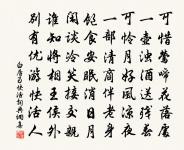 可惜鶯啼花落處
一壺濁酒送殘春
可憐月好風涼夜
一部清商伴老身
飽食安眠消日月
閑談冷笑接交親
誰知將相王侯外
別有優游快活人
白居易快活詞典網集